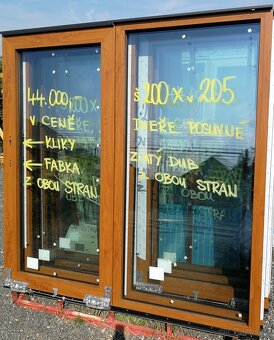 44.000,
V CENĚ
← KLIKY
← FABKA
Z OBOU STRAN
š 200 x v 205
DVEŘE POSUVNÉ
ZLATÝ DUB
Z OBOU STRAN